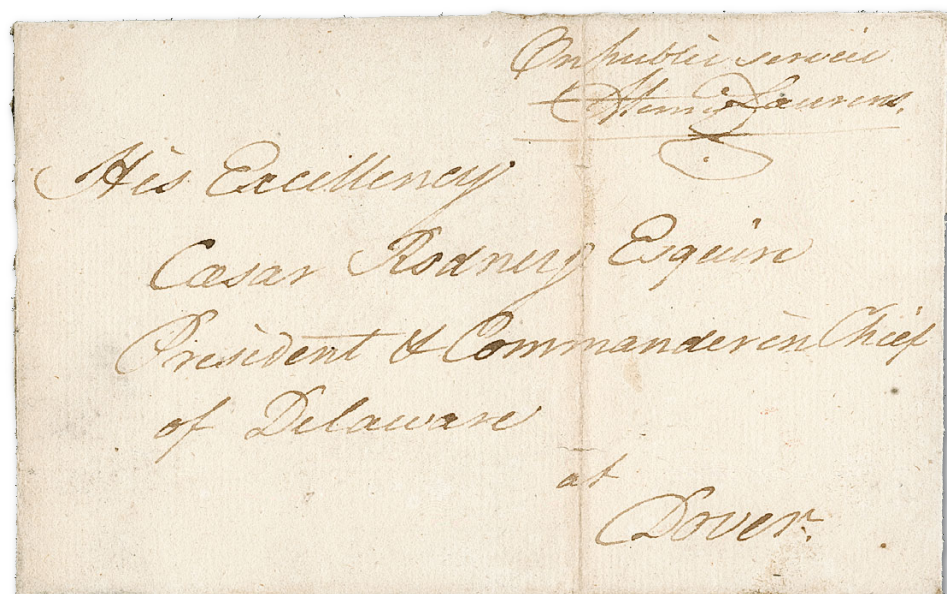 On public service
Henry Laurens.
His Excellency
Cæsar Rodney Esquire
President & Commander in Chief
of Delaware
at
Dover.